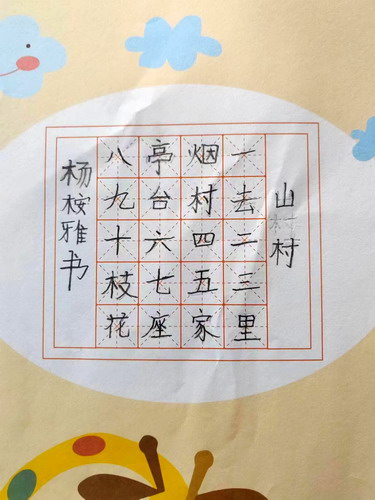 山村
一去二三里
烟村四五家
亭台六七座
八九十枝花
杨桉雅书